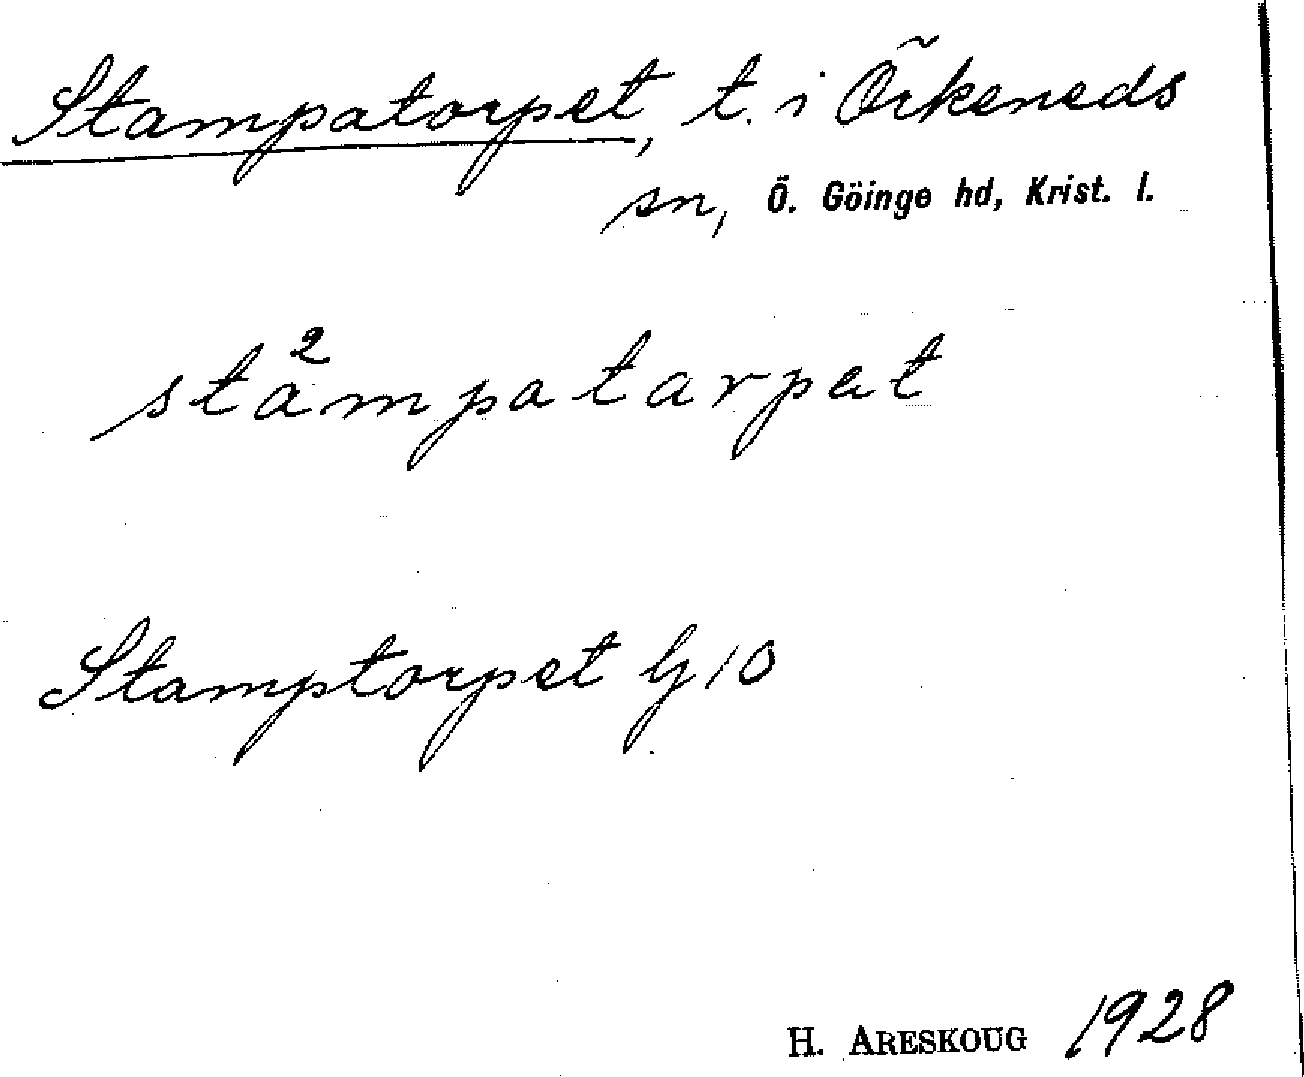 Stampatorpet, t. i Örkeneds
sn, Ö. Göinge hd, Krist. l.
sta²mpatarpat
Stamptorpet Gj 10
H. ARESKOUG 1928